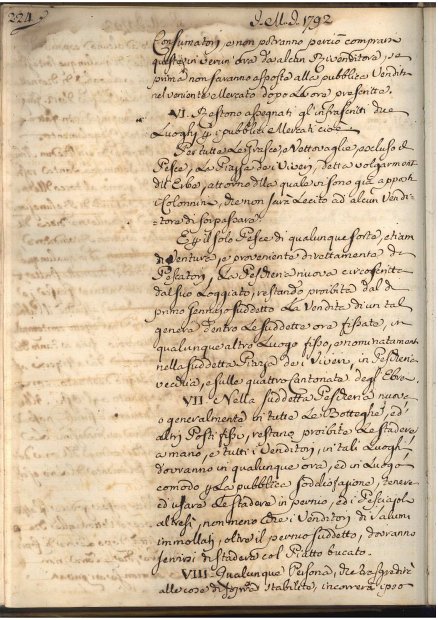 224
I. M. I. 1792
Consumatori, e non potranno perciò comprare
queste in verun' ora da alcun Rivenditore, se
prima non saranno esposte alla pubblica Vendita
nel veniente Mercato dopo le ore prescritte.
VI. Restono assegnati gl' infrascritti due
Luoghi p i pubblici Mercati cioè
Per tutte le Grasce, o Vettovaglie, escluso il
Pesce, La Piazza dei Viveri, detta volgarmente
dell' Erbe, attorno alla quale vi sono già apposte
Colonnini, che non sarà lecito ad alcun Vendi:
tore di sorpassare.
E p il solo Pesce di qualunque sorte, etiam
di venture, e proveniente direttamente da
Pescatori, La Peschiera nuova circoscritta
dal suo Loggiato, restando proibita dal dì
primo Gennajo suddetto La Vendita di un tal
genere, dentro Le suddette ore fissate, in
qualunque altro Luogo fisso, e nominatamente
nella suddetta Piazza dei Viveri, in Pescheria
vecchia, e sulle quattro Cantonate degl' Ebrei.
VII. Nella suddetta Pescheria nuova
o generalmente in tutte Le Botteghe, ed
altri Posti fissi, restano proibite Le Stadere
a mano, e tutti i Venditori, in tali Luoghi,
dovranno in qualunque ora, ed in Luogo
comodo p La pubblica sodisfazione, tenere
ed usare Le Stadere in pernio, ed i Pesciajoli
altresì, non meno che i Venditori di Salumi
immollati, oltre il pernio suddetto, dovranno
servirsi di Stadere col Piatto bucato.
VIII. Qualunque Persona, che trasgredirà
alle cose di sopra stabilite, incorrerà ipso